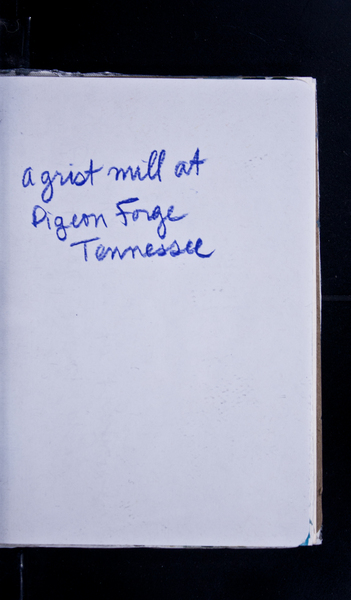 a grist mill at
Pigeon Forge
Tennessee